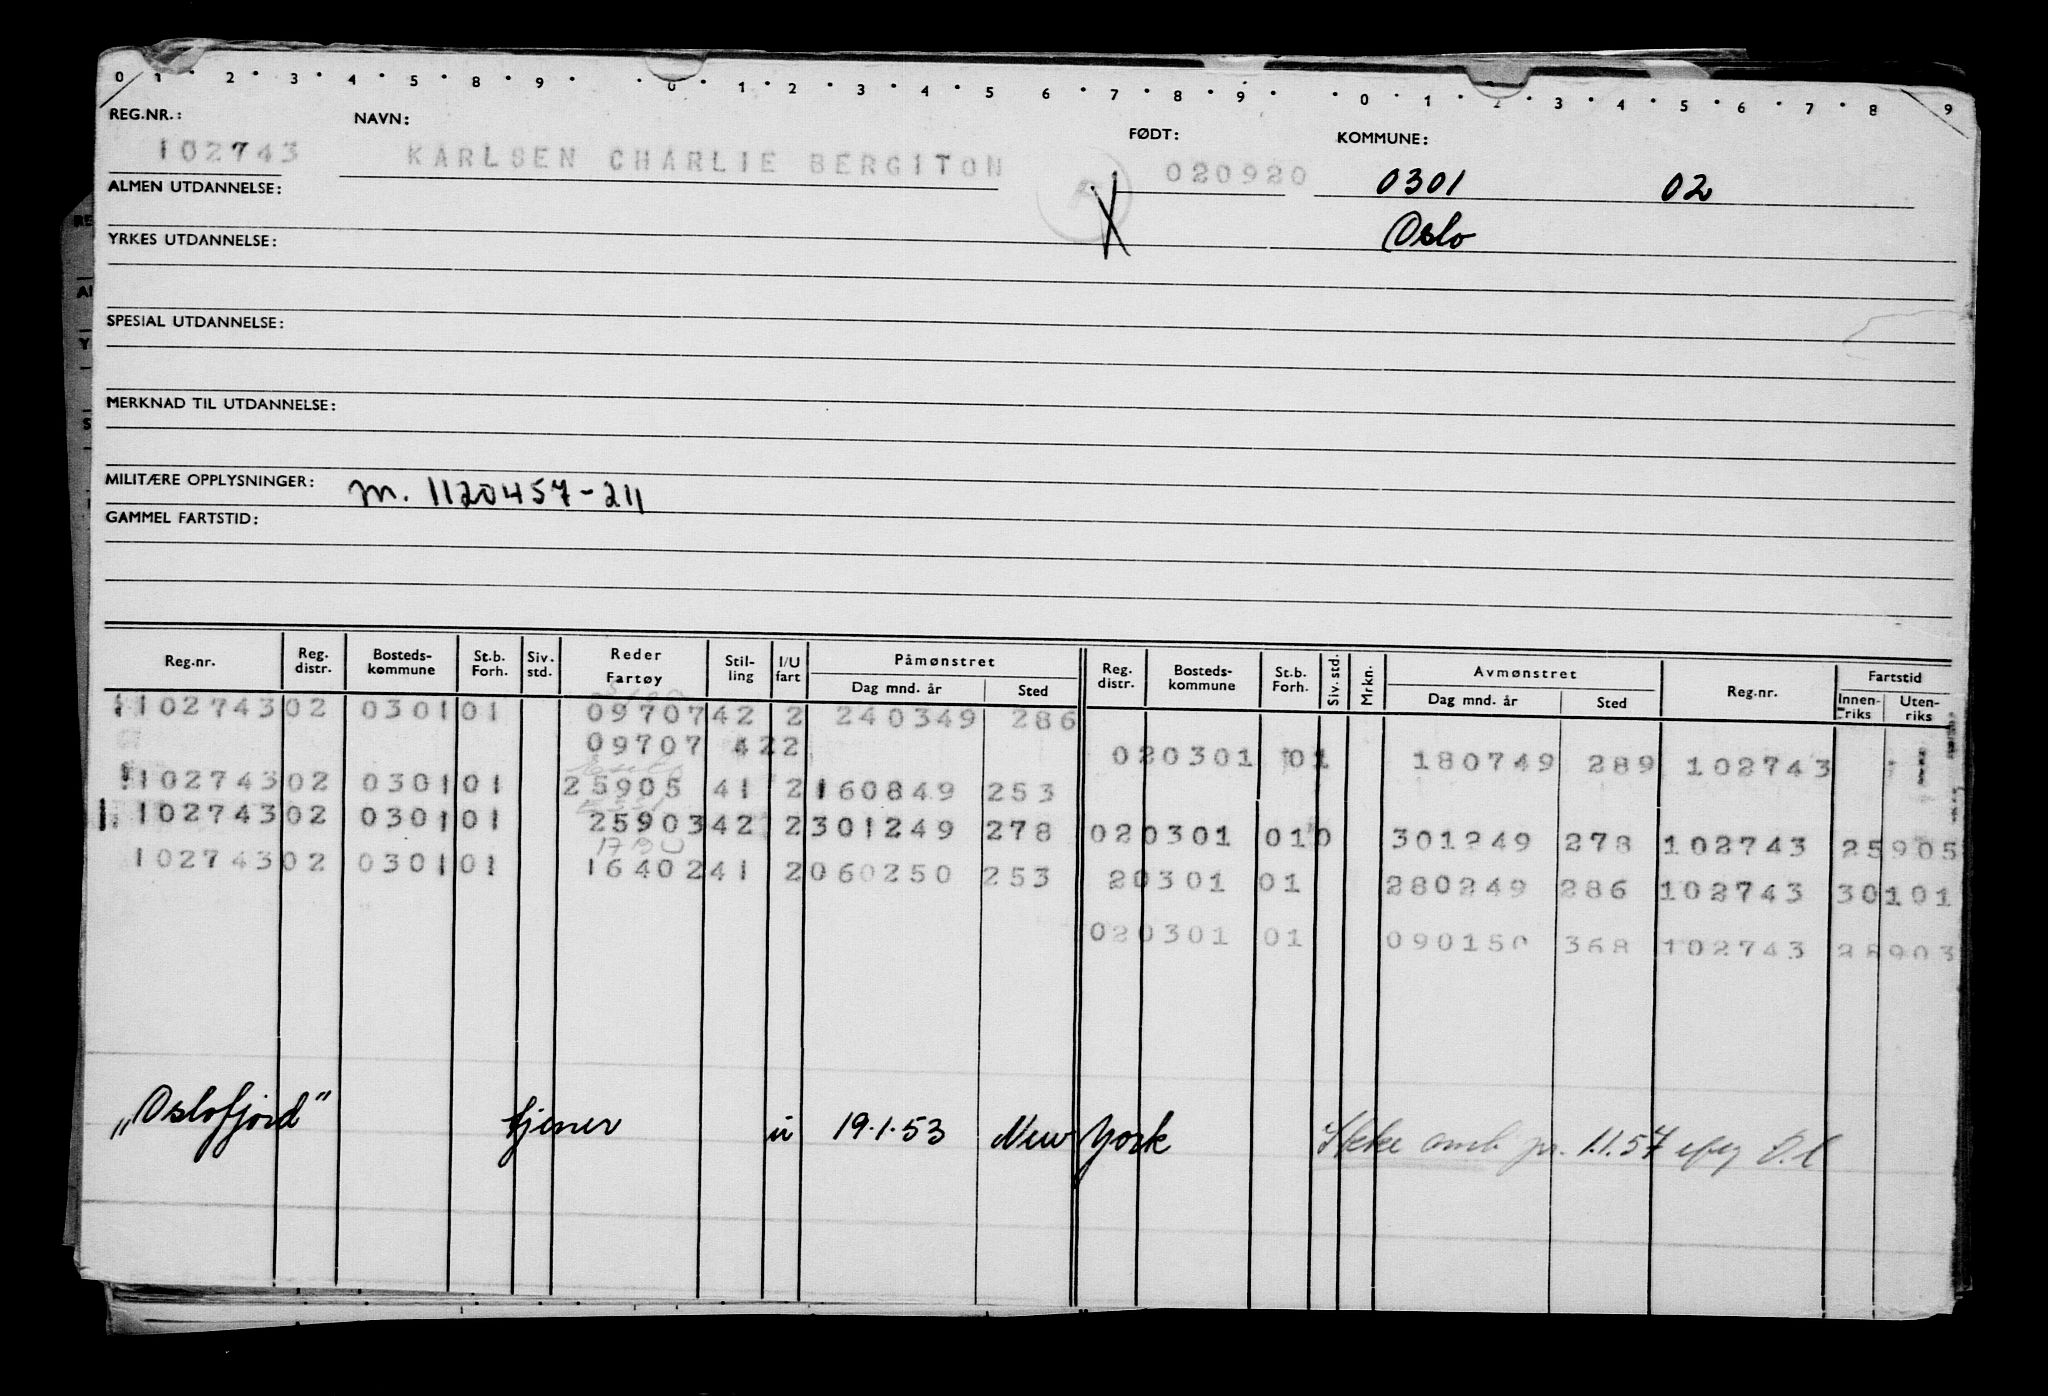 0 1 2 3 4 5 8 9 0 1 2 3 4 5 6 7 8 9 0 1 2 3 4 5 6 7 8 9
REG.NR.: NAVN: FØDT: KOMMUNE:
102743 KARLSEN CHARLIE BERGITON 020920 0301 02
ALMEN UTDANNELSE:
Oslo
YRKES UTDANNELSE:
SPESIAL UTDANNELSE:
MERKNAD TIL UTDANNELSE:
MILITÆRE OPPLYSNINGER: m. 1120457-211
GAMMEL FARTSTID:
Reg.nr. Reg. distr. Bosteds- kommune St.b. Forh. Siv. std. Reder Fartøy Stil- ling I/U fart Påmønstret Dag mnd. år Sted Reg. distr. Bosteds- kommune St.b. Forh. Siv. std. Mrkn. Avmønstret Dag mnd. år Sted Reg.nr. Fartstid Innen- riks Uten- riks
102743 02 0301 01 09707 42 2 240349 286
09707 42 2 02 0301 01 180749 289 102743
102743 02 0301 01 25905 41 2 160849 253
102743 02 0301 01 25903 42 2 301249 278 02 0301 01 0 301249 278 102743 25905
102743 02 0301 01 16402 41 2 060250 253 2 0301 01 280249 286 102743 30101
02 0301 01 090150 368 102743 25903
„Oslofjord" tjener u 19.1.53 New York Ikke omb. pr. 1.1.57